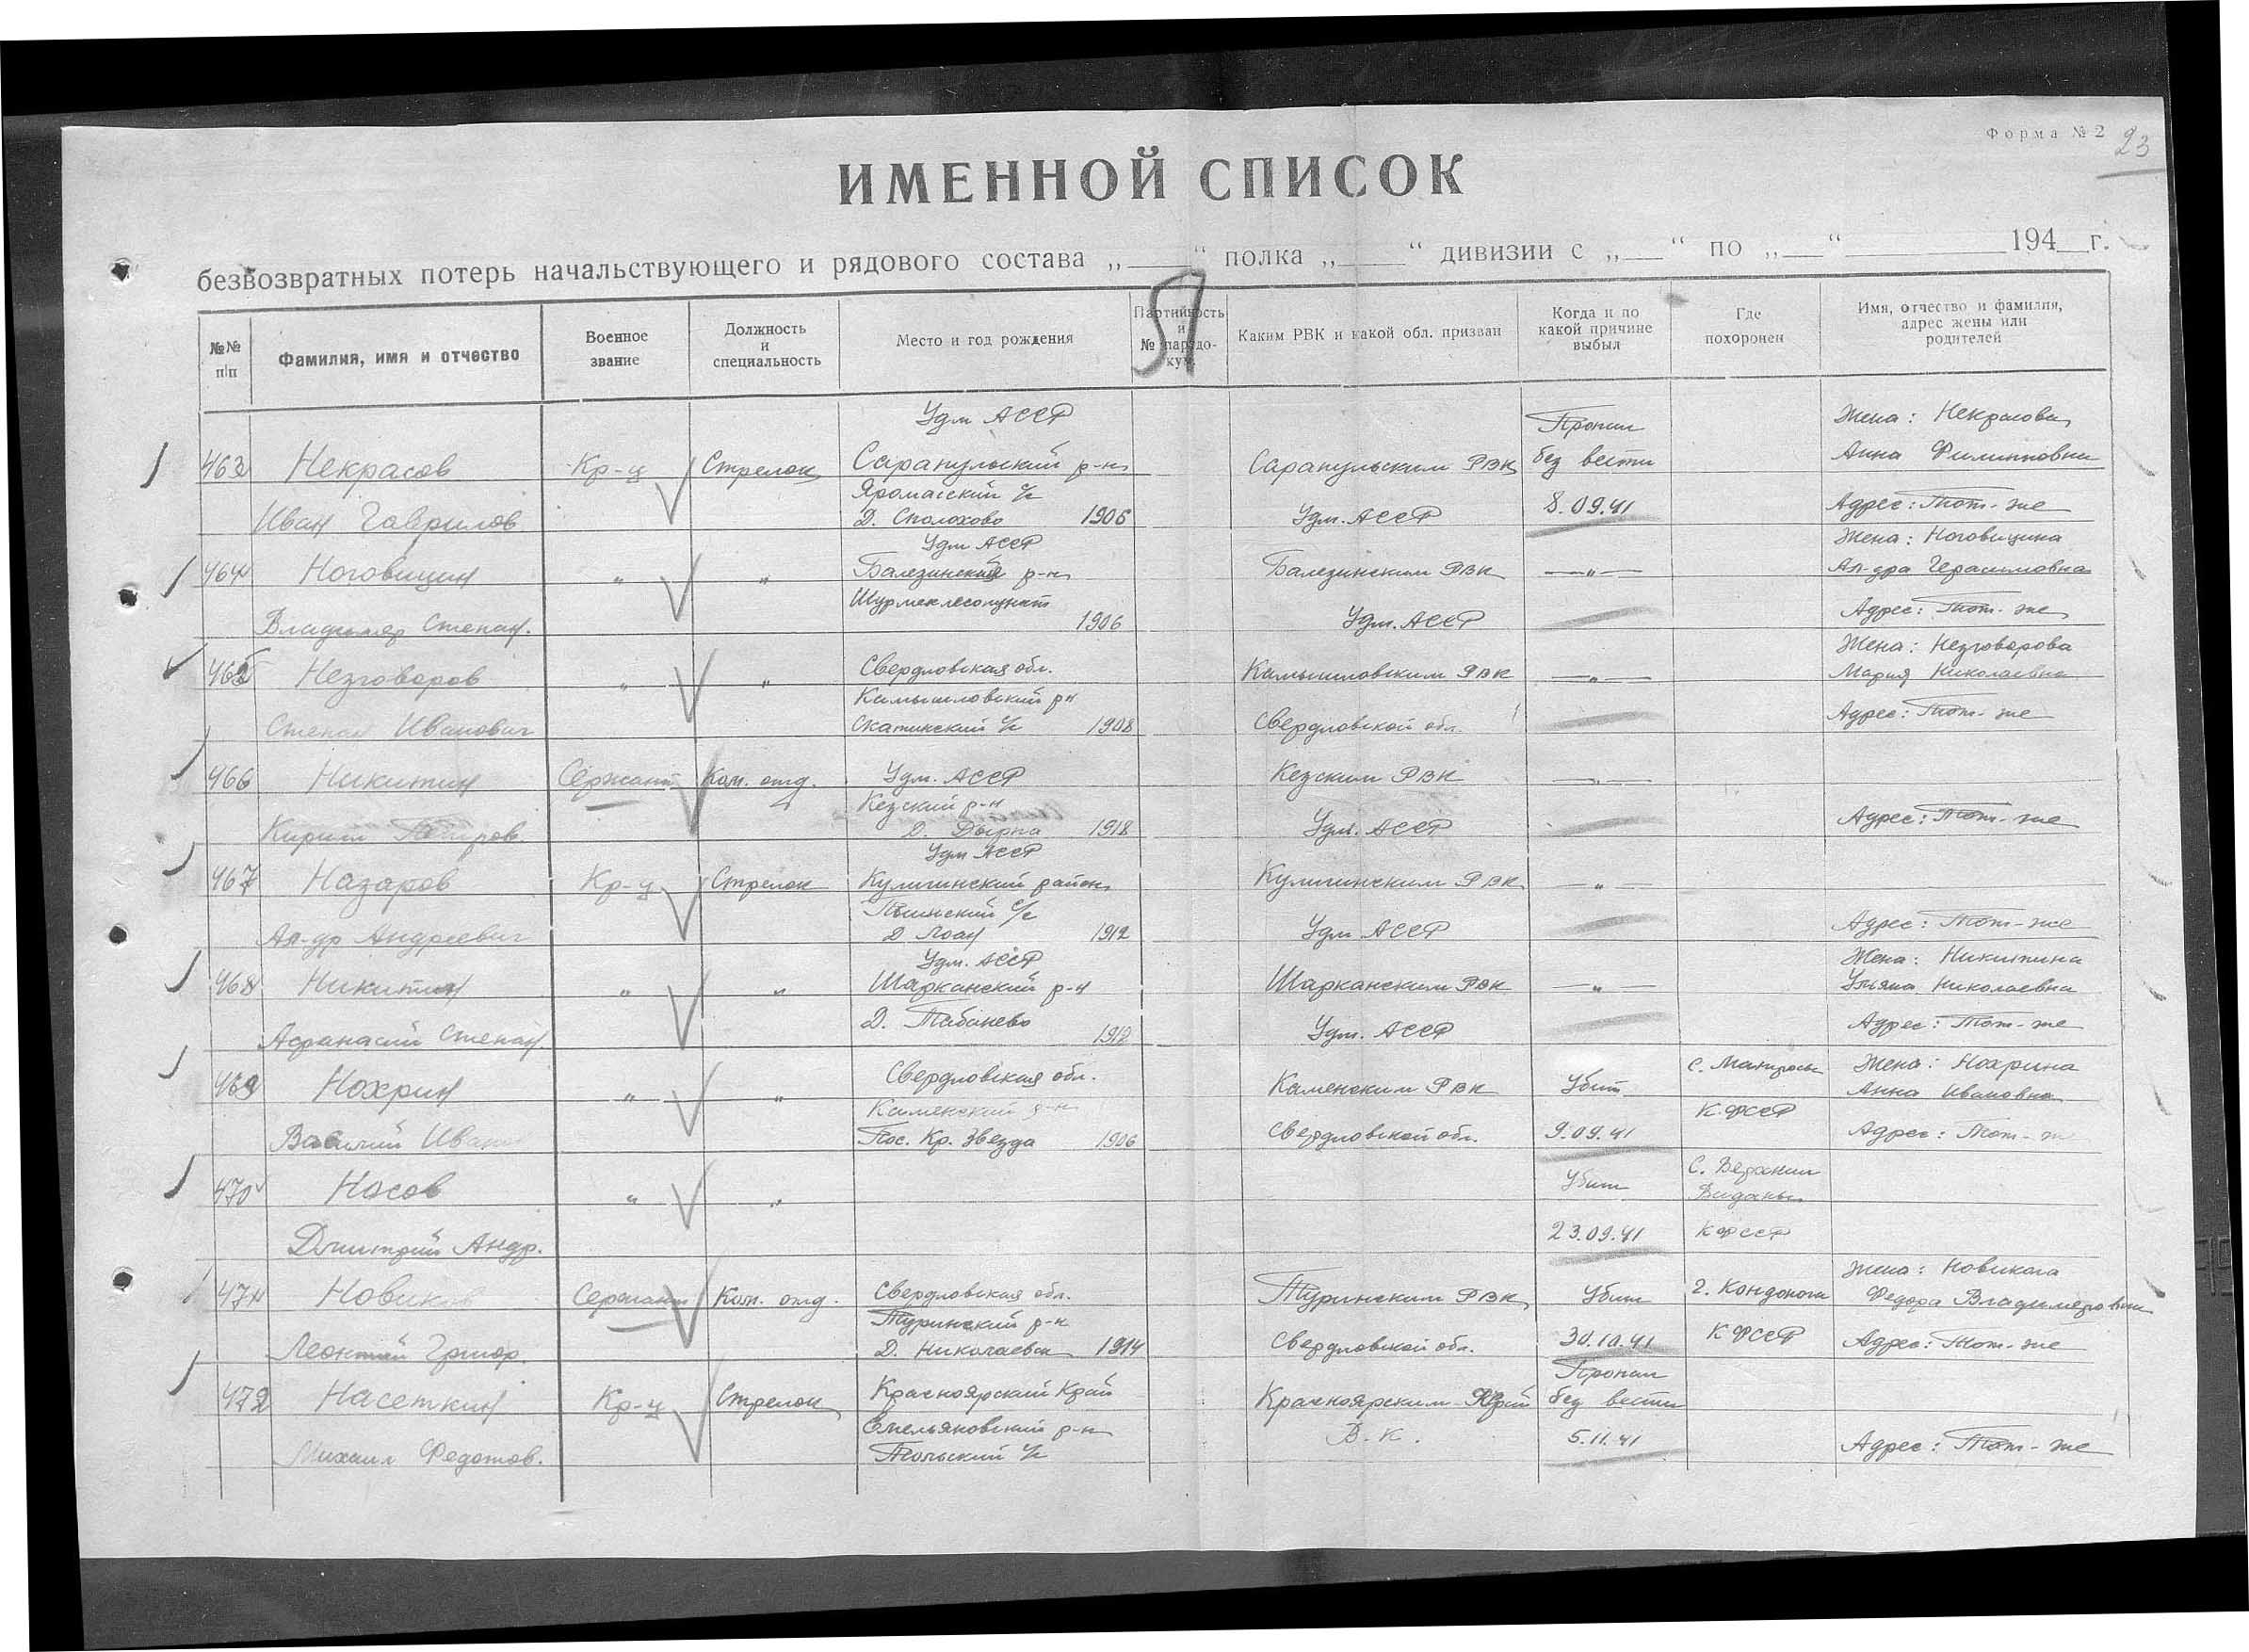 Форма № 2
23
ИМЕННОЙ СПИСОК
безвозвратных потерь начальствующего и рядового состава „___“ полка „___“ дивизии с „__“ по „__“ ______ 194__г.
№№ п/п
Фамилия, имя и отчество
Военное звание
Должность и специальность
Место и год рождения
Партийность и № пардокум.
Каким РВК и какой обл. призван
Когда и по какой причине выбыл
Где похоронен
Имя, отчество и фамилия, адрес жены или родителей
Удм АССР Пропал Жена: Некрасова
463 Некрасов Кр-ц Стрелок Сарапульский р-н Сарапульским РВК без вести Анна Филипповна
Яромасский с/с
Иван Гаврилов Д. Сполохово 1906 Удм. АССР 8.09.41 Адрес: Тот-же
Удм АССР Жена: Ноговицина
464 Ноговицин " " Балезинский р-н Балезинским РВК —"— Ал-дра Герасимовна
Шурмек лесопункт
Владимир Степан. 1906 Удм. АССР Адрес: Тот-же
Жена: Незговорова
465 Незговоров " " Свердловская обл. Камышловским РВК —"— Мария Николаевна
Камышловский рн
Степан Иванович Скатинский с/с 1908 Свердловской обл. Адрес: Тот-же
466 Никитин Сержант Ком. отд. Удм. АССР Кезским РВК —"—
Кезский р-н
Кирилл Д. Дырпа 1918 Удм. АССР Адрес: Тот-же
Удм АССР
467 Назаров Кр-ц Стрелок Кулигинский район Кулигинским РВК —"—
с/с
Ал-др Андреевич Д. 1912 Удм АССР Адрес: Тот-же
Удм. АССР Жена: Никитина
468 Никитин " " Шарканский р-н Шарканским РВК —"— Ульяна Николаевна
Афанасий Степан Д. Табанево 1912 Удм. АССР Адрес: Тот-же
469 Нохрин " " Свердловская обл. Каменским РВК Убит С. Жена: Нохрина
Каменский р-н Анна Ивановна
Василий Иван Пос. Кр. Звезда 1906 Свердловской обл. 9.09.41 К-ФССР Адрес: Тот-ж
470 Носов " " Убит С. Верхние
Виданы
Дмитрий Андр. 23.09.41 КФССР
Жена: Новикова
471 Новиков Сержант Ком. отд. Свердловская обл. Туринским РВК Убит г. Кондопога Федора Владимировна
Туринский р-н
Леонтий Григор. Д. Николаевка 1914 Свердловской обл. 30.10.41 КФССР Адрес: Тот-же
Пропал
472 Насеткин Кр-ц Стрелок Красноярский Край Красноярским Край без вести
Емельяновский р-н В.К. 5.11.41
Михаил Федотов. с/с Адрес: Тот-же